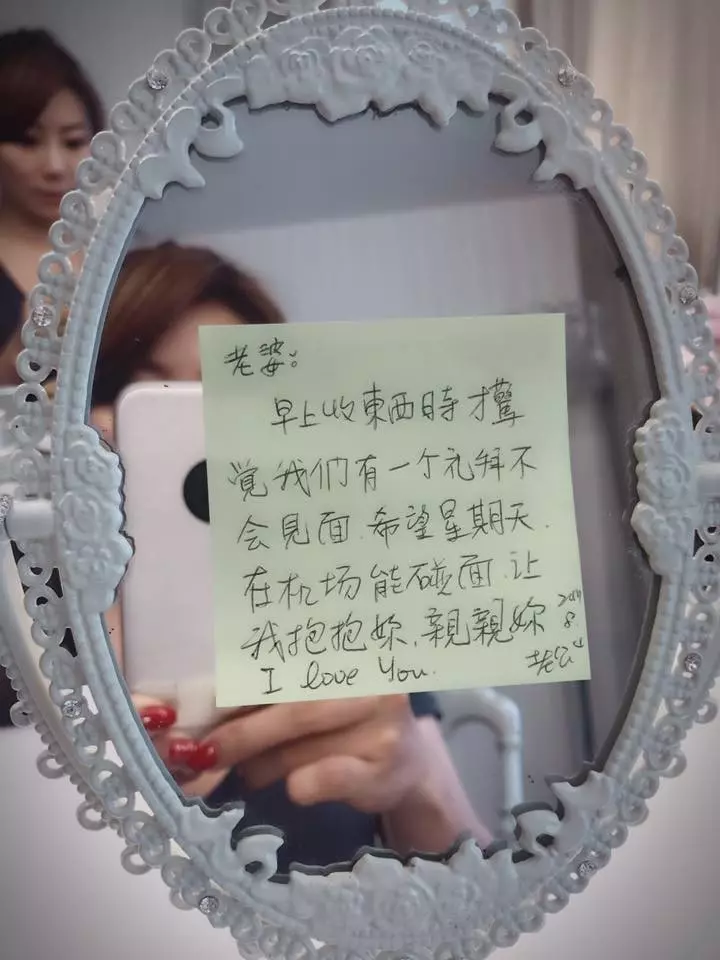 老婆：
早上收東西時才驚
覺我们有一个礼拜不
会見面.希望星期天.
在机场能碰面.让
我抱抱妳.親親妳
I love You.
老公